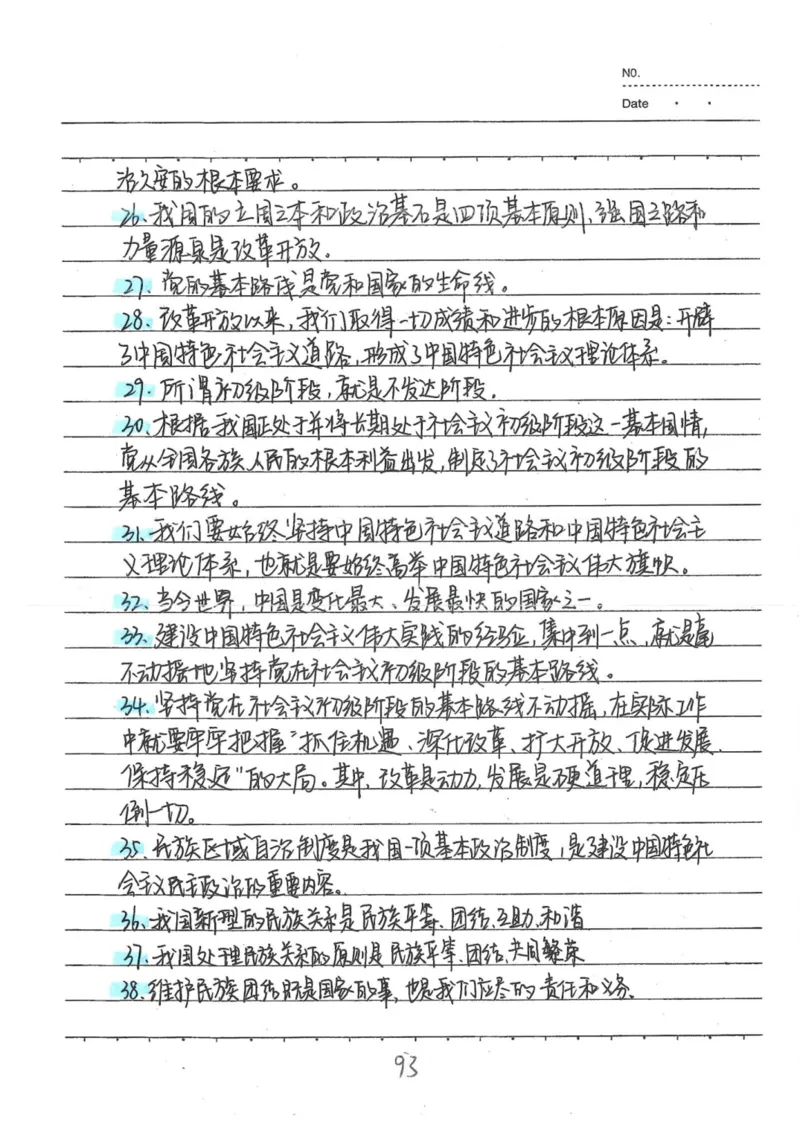 NO.
Date
治久安的根本要求。
26、我国的立国之本和政治基石是四项基本原则、强国之路和
力量源泉是改革开放。
27、党的基本路线是党和国家的生命线。
28、改革开放以来，我们取得一切成绩和进步的根本原因是：开辟
了中国特色社会主义道路，形成了中国特色社会主义理论体系。
29、所谓初级阶段，就是不发达阶段。
30、根据我国正处于并将长期处于社会主义初级阶段这一基本国情，
党从全国各族人民的根本利益出发，制定了社会主义初级阶段的
基本路线。
31、我们要始终坚持中国特色社会主义道路和中国特色社会主
义理论体系，也就是要始终高举中国特色社会主义伟大旗帜。
32、当今世界，中国是变化最大、发展最快的国家之一。
33、建设中国特色社会主义伟大实践的经验，集中到一点，就是毫
不动摇地坚持党在社会主义初级阶段的基本路线。
34、坚持党在社会主义初级阶段的基本路线不动摇，在实际工作
中就要牢牢把握“抓住机遇、深化改革、扩大开放、促进发展、
保持稳定”的大局。其中，改革是动力，发展是硬道理，稳定压
倒一切。
35、民族区域自治制度是我国一项基本政治制度，是建设中国特色社
会主义民主政治的重要内容。
36、我国新型的民族关系是民族平等、团结、互助、和谐
37、我国处理民族关系的原则是民族平等、团结、共同繁荣
38、维护民族团结既是国家的事，也是我们应尽的责任和义务。
93